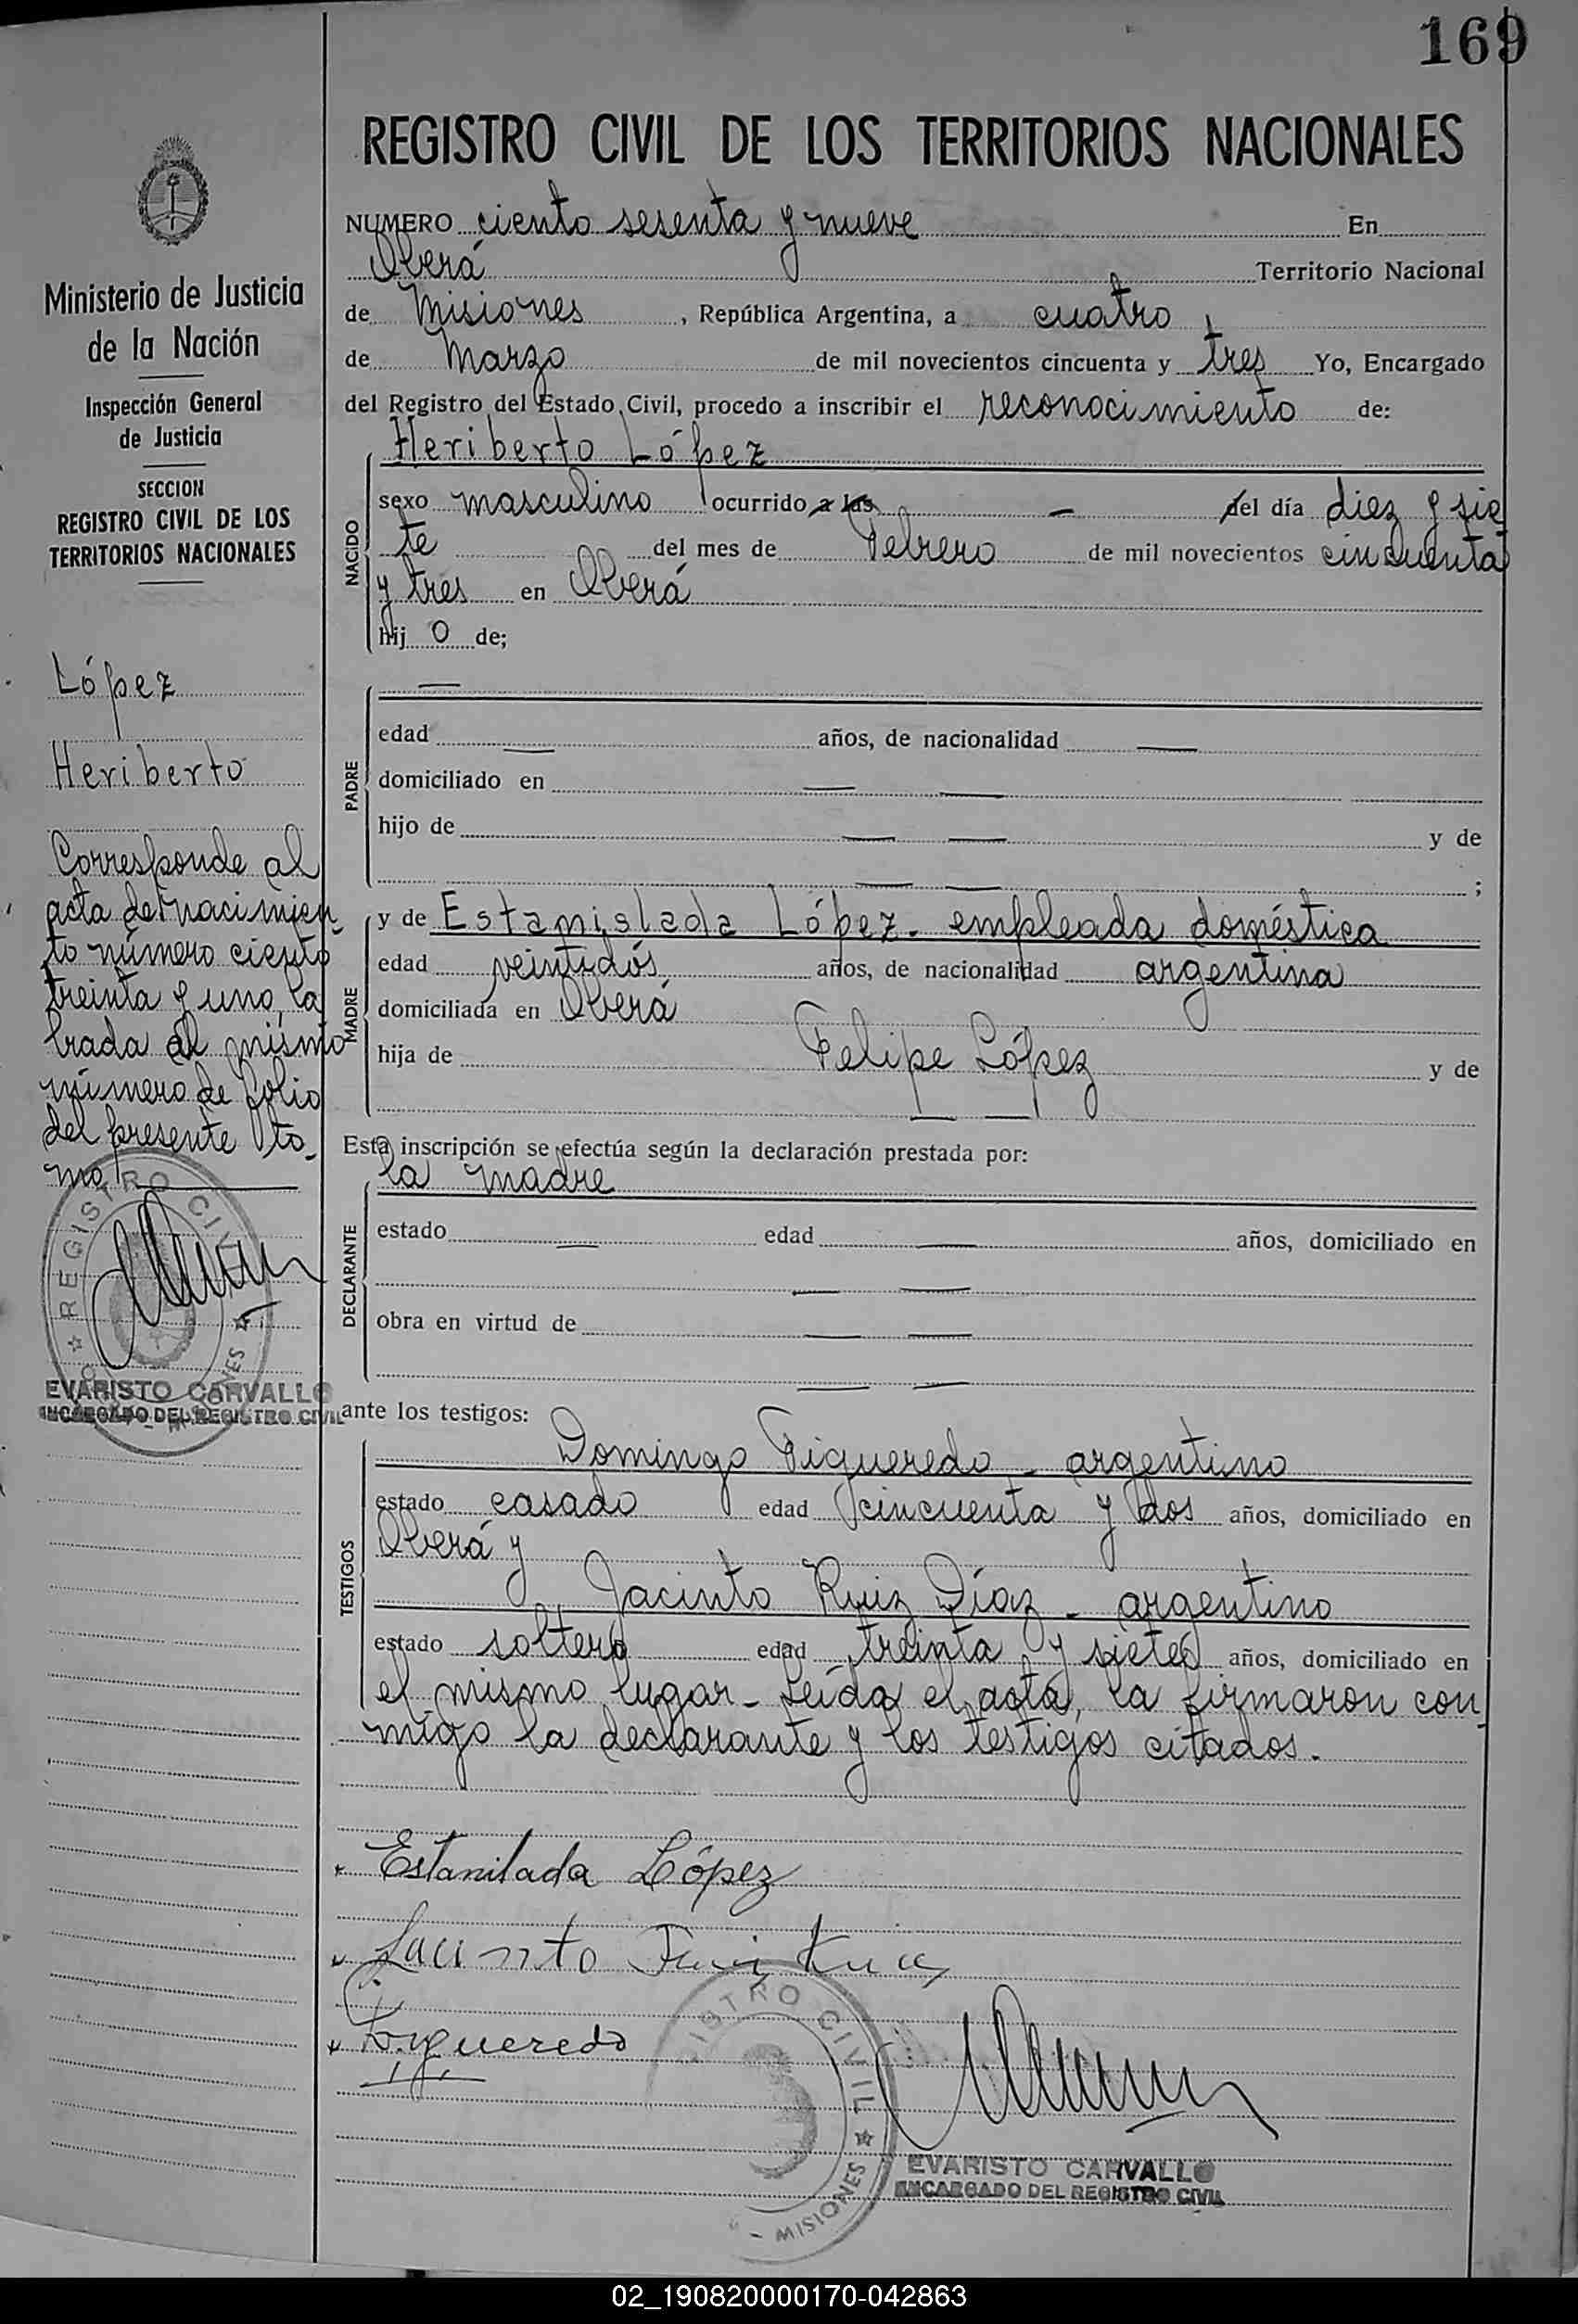 169
REGISTRO CIVIL DE LOS TERRITORIOS NACIONALES
Ministerio de Justicia
de la Nación
Inspección General
de Justicia
SECCION
REGISTRO CIVIL DE LOS
TERRITORIOS NACIONALES
López
Heriberto
Corresponde al
acta de nacimien-
to número ciento
treinta y uno, la
brada al mismo
número de folio
del presente to-
mo
REGISTRO CIVIL
MISIONES
EVARISTO CARVALLO
ENCARGADO DEL REGISTRO CIVIL
NUMERO ciento sesenta y nueve En
Oberá Territorio Nacional
de Misiones, República Argentina, a cuatro
de Marzo de mil novecientos cincuenta y tres Yo, Encargado
del Registro del Estado Civil, procedo a inscribir el reconocimiento de:
Heriberto López
NACIDO
sexo masculino ocurrido a las — del día diez y sie
te del mes de Febrero de mil novecientos cincuenta
y tres en Oberá
hij o de;
PADRE
—
edad — años, de nacionalidad —
domiciliado en — —
hijo de — — y de
— — ;
MADRE
y de Estanislada López - empleada doméstica
edad veintidós años, de nacionalidad argentina
domiciliada en Oberá
hija de Felipe López y de
— —
Esta inscripción se efectúa según la declaración prestada por:
la madre
DECLARANTE
estado — edad — años, domiciliado en
— —
obra en virtud de — —
— —
ante los testigos:
TESTIGOS
Domingo Figueredo - argentino
estado casado edad cincuenta y dos años, domiciliado en
Oberá y
Jacinto Ruiz Díaz - argentino
estado soltero edad treinta y siete años, domiciliado en
el mismo lugar - Leída el acta, la firmaron con-
migo la declarante y los testigos citados.
Estanilada López
Jacinto
Figueredo
REGISTRO CIVIL
MISIONES
EVARISTO CARVALLO
ENCARGADO DEL REGISTRO CIVIL
02_190820000170-042863